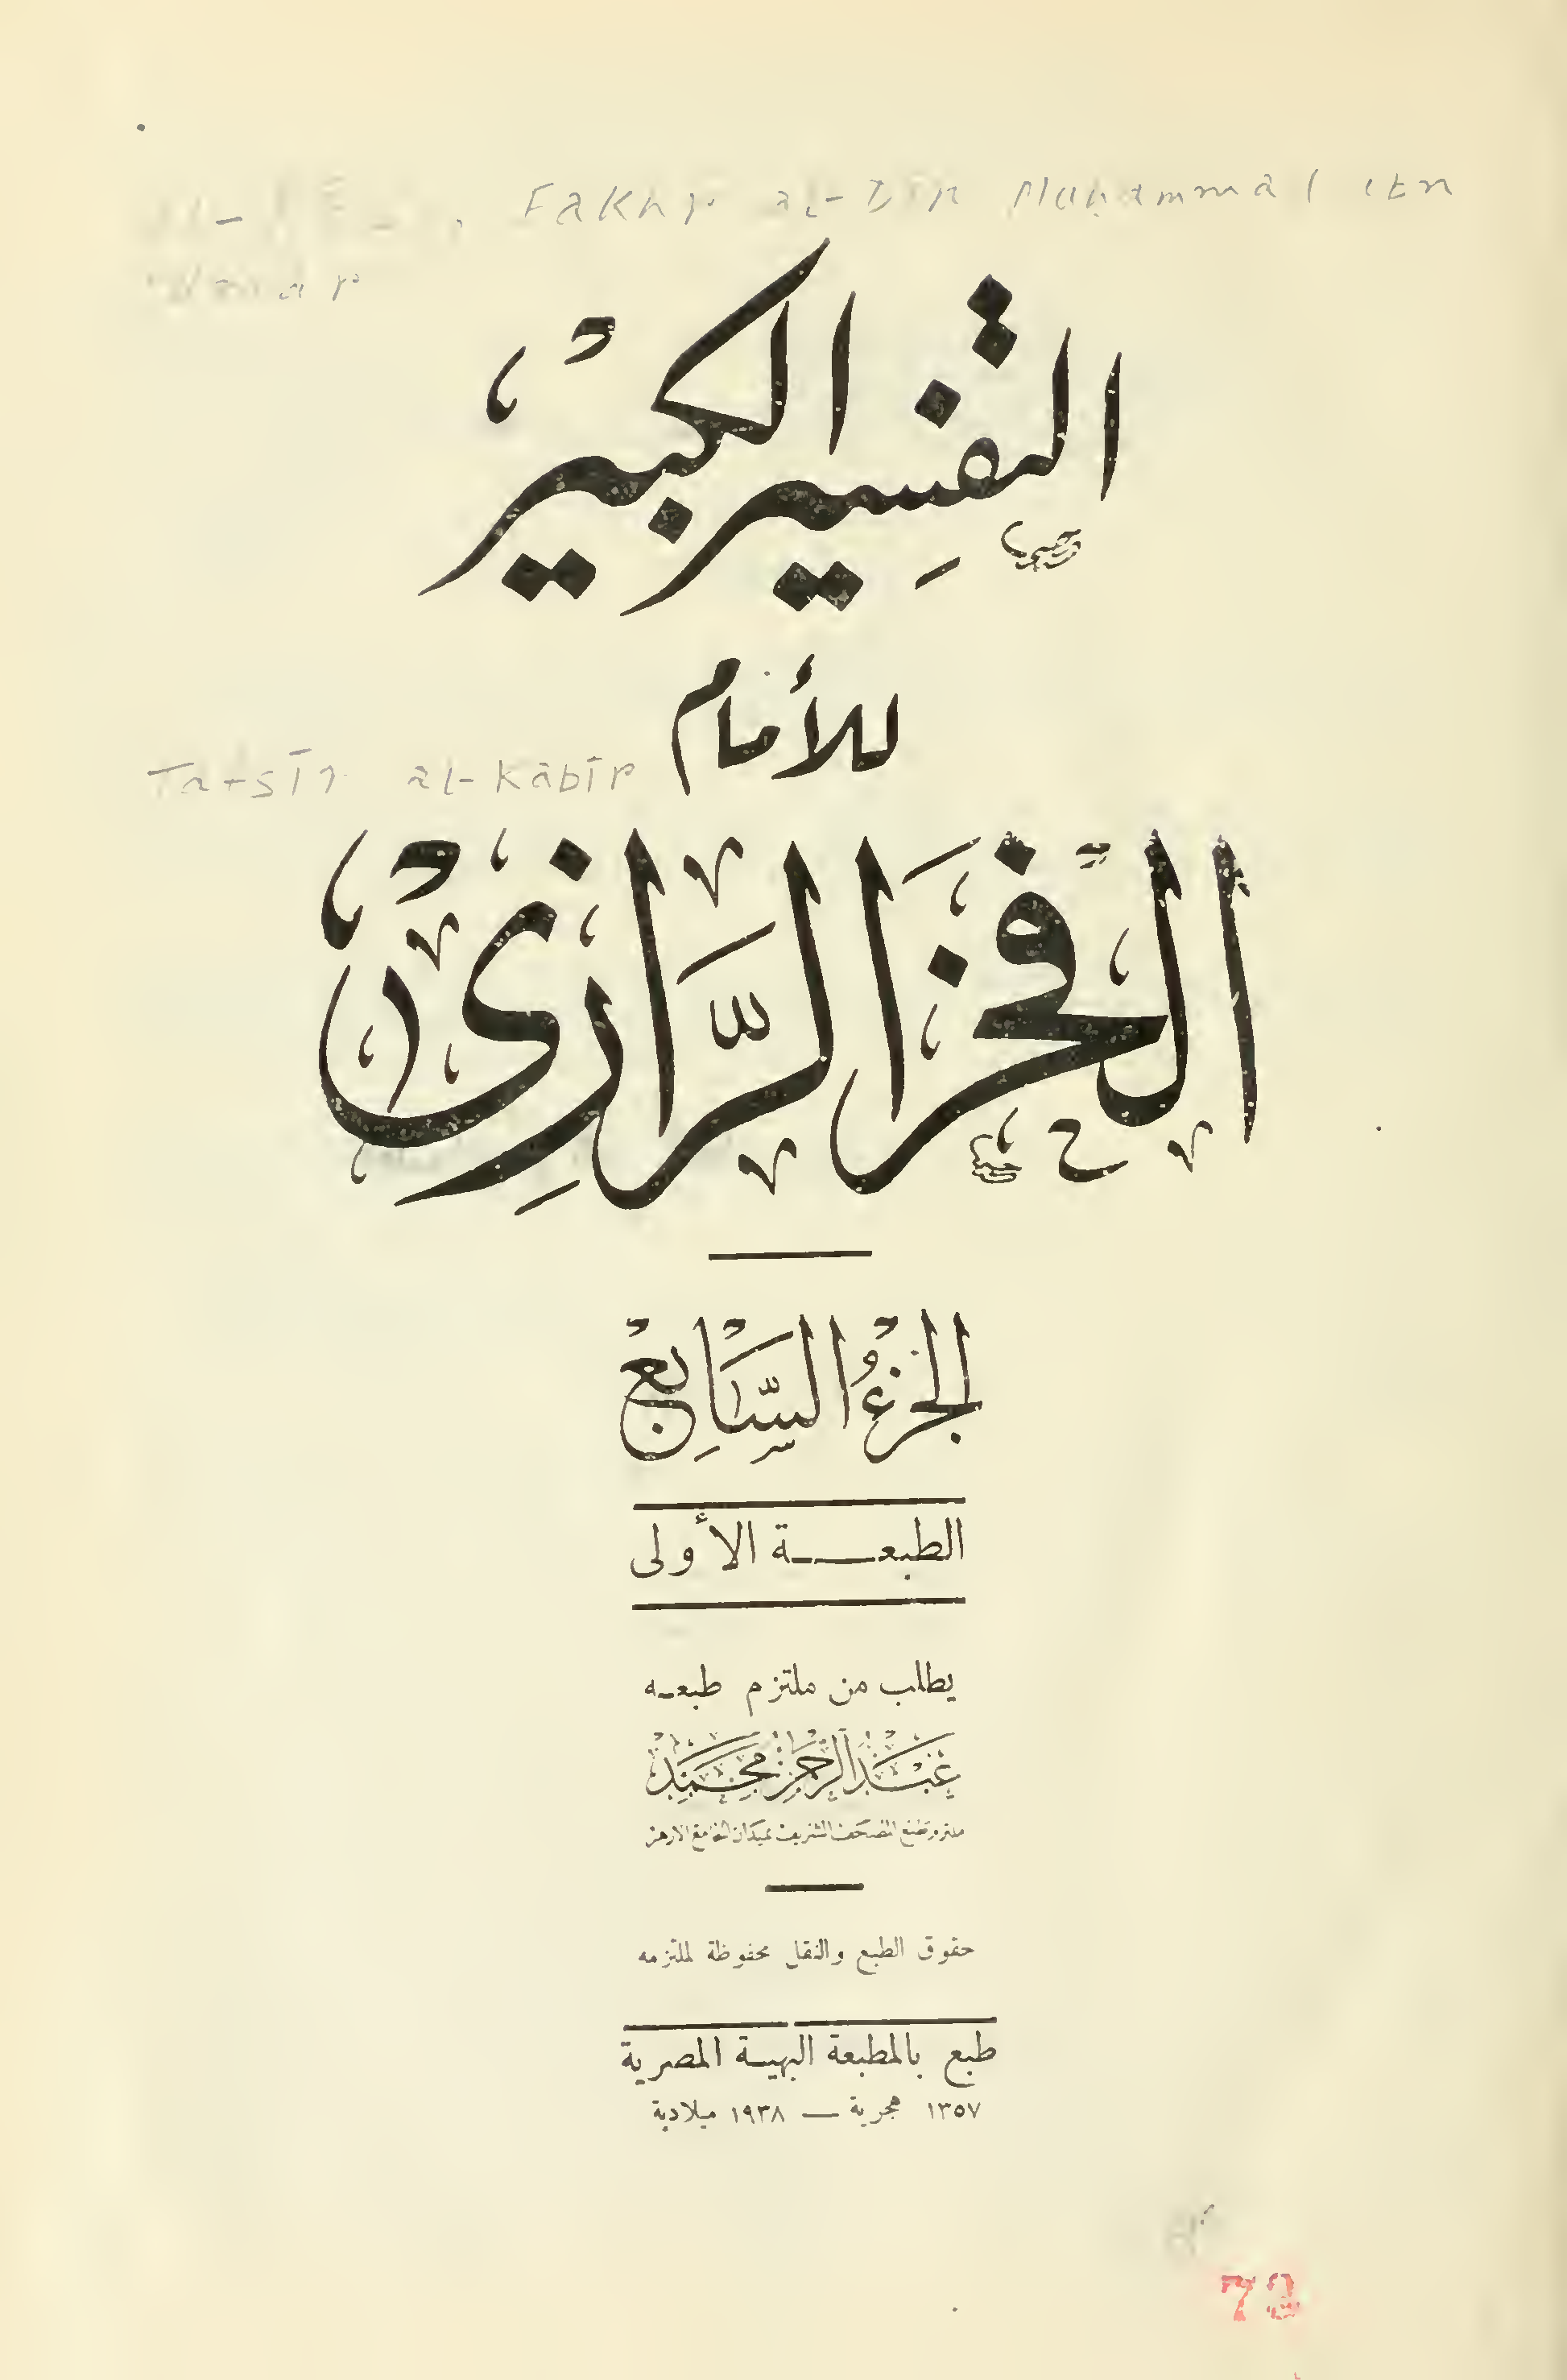 Fakhr al-Dīn Muḥammad ibn
التفسير الكبير
للأمام
Tafsīr al-Kabīr
الفخر الرازي
الجزء السابع
الطبعة الأولى
يطلب من ملتزم طبعه
عبد الرحمن محمد
ملتزم طبع المصحف الشريف بميدان الجامع الازهر
حقوق الطبع والنقل محفوظة لملتزمه
طبع بالمطبعة البهية المصرية
١٣٥٧ هجرية — ١٩٣٨ ميلادية